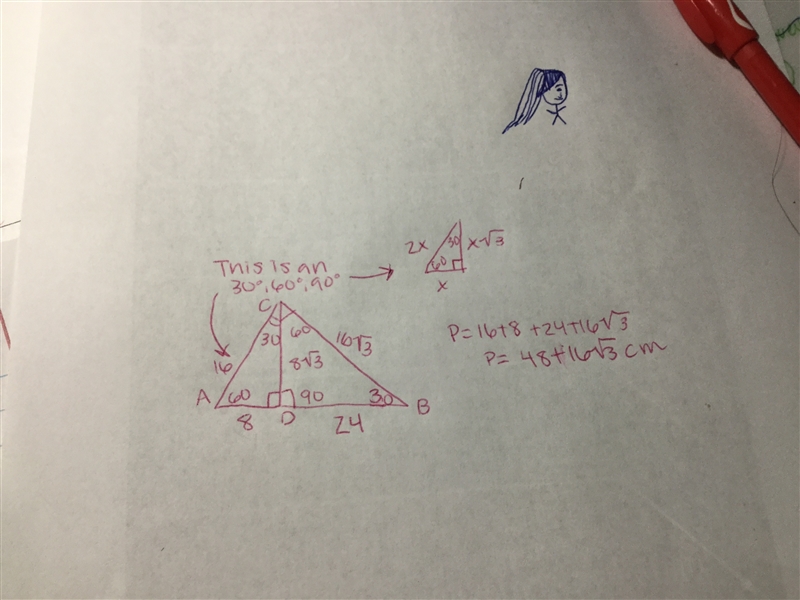 2x
30
x√3
60
x
This is an
30°,60°,90°
C
30
60
16√3
16
8√3
A
60
90
30
B
8
D
24
P=16+8+24+16√3
P= 48+16√3 cm